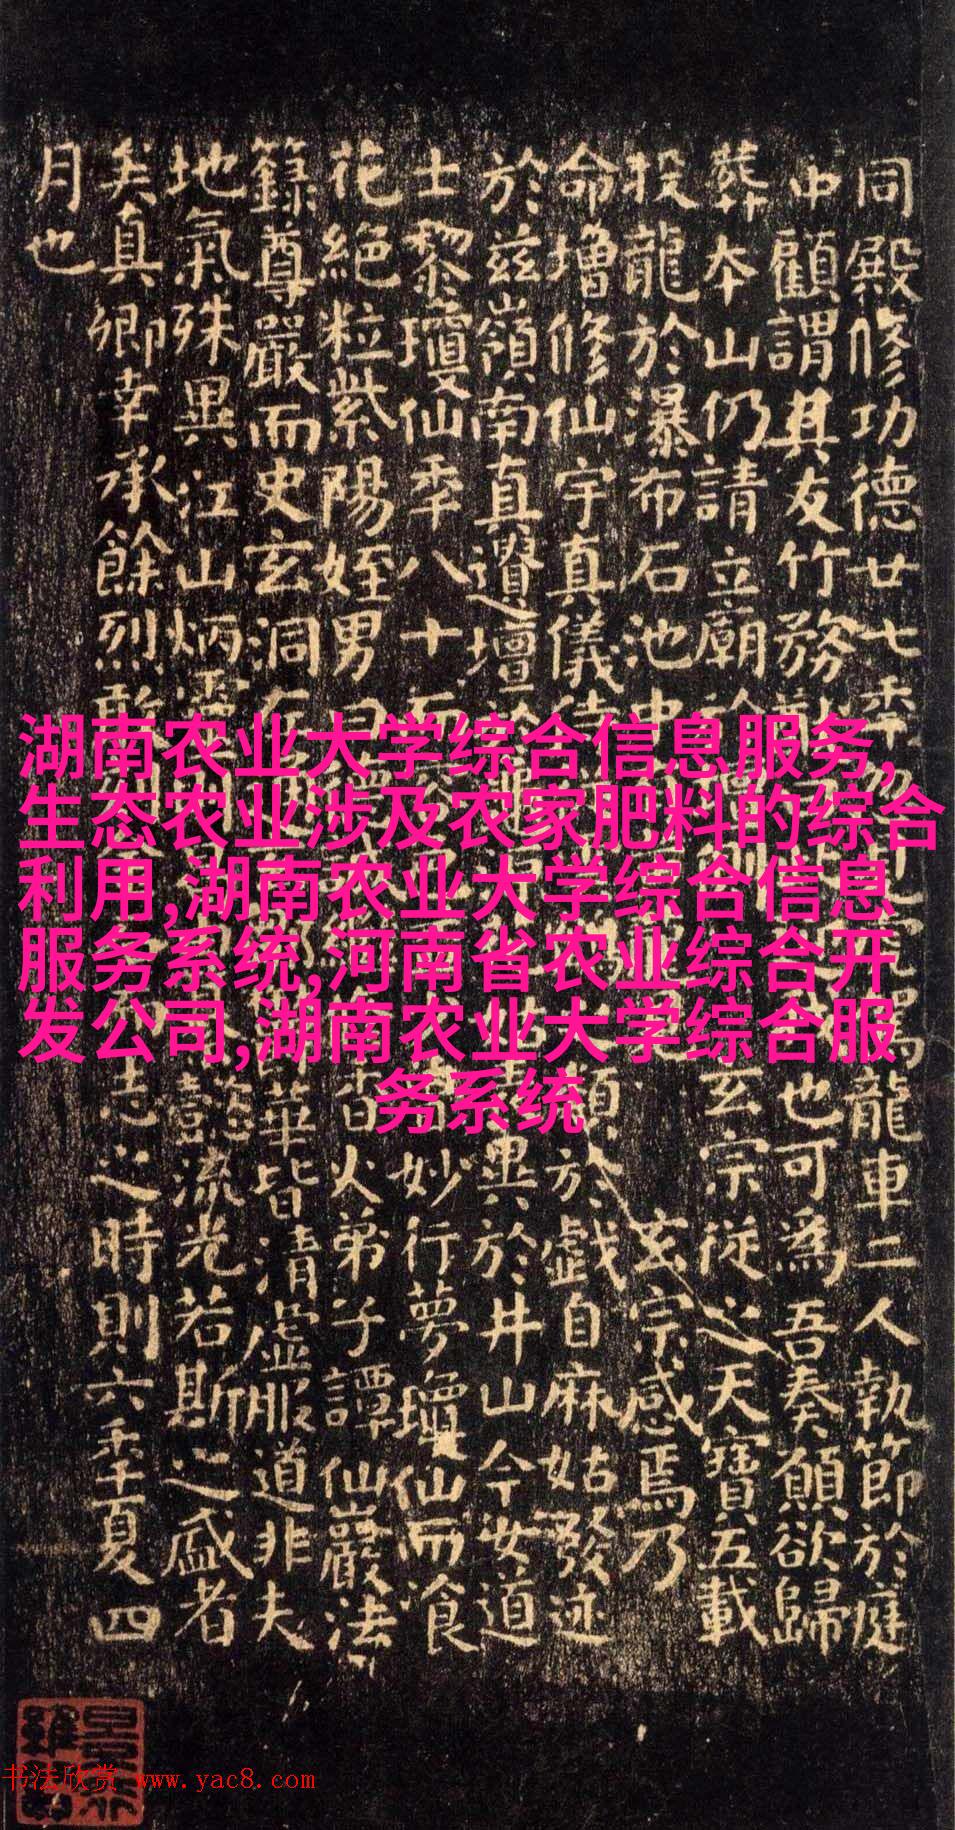 同殿修功德廿七季 龍車二人執節於庭
中顧謂其友竹務 也可為吾奏願欲歸
葬本山仍請立廟 玄宗從之天寶五載
投龍於瀑布石池中 玄宗感焉乃
命增修仙宇真儀侍 類於戲自麻姑發迹
於茲嶺南真遺壇於 異於井山今女道
士黎瓊仙季八十而 妙行夢瓊仙而飡
花絕粒紫陽姪男曰 香火弟子譚仙巖法
籙尊嚴而史玄洞左 華皆清虛服道非夫
地氣殊異江山炳靈 懿流光若斯之盛者
矣真卿幸承餘烈敢 志之時則六季夏四
月也
湖南农业大学综合信息服务,
生态农业涉及农家肥料的综合
利用,湖南农业大学综合信息
服务系统,河南省农业综合开
发公司,湖南农业大学综合服
务系统
书法欣赏 www.yac8.com